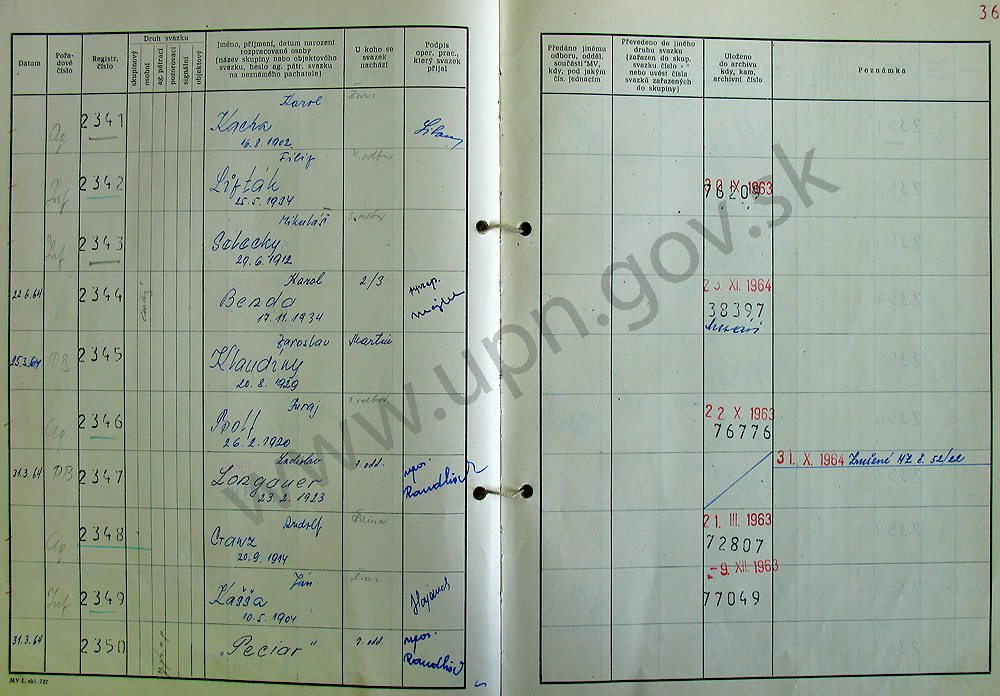 36
Datum
Pořadové číslo
Registr. číslo
Druh svazku
skupinový
osobní
ag. pátrací
pozorovací
signální
objektový
Jméno, příjmení, datum narození
rozpracované osoby
(název skupiny nebo objektového
svazku, heslo ag. pátr. svazku
na neznámého pachatele)
U koho se
svazek
nachází
Podpis
oper. prac.,
který svazek
přijal
Předáno jinému
odboru, odděl.
součásti MV,
kdy, pod jakým
čís. jednacím
Převedeno do jiného
druhu svazku
(zařazen do skup.
svazku číslo -
nebo uvést čísla
svazků zařazených
do skupiny)
Uloženo
do archivu
kdy, kam,
archivní číslo
Poznámka
Ag. 2341 Karol
Kacha
16.8.1902
Inf 2342 Filip V. odbor
Lifták
25.5.1934
28 IX. 1963
76209
Inf 2343 Mikuláš odbor
Sztecky
29.6.1912
22.6.64 2344 Karol 2/3
Benda
17.11.1934
23. XI. 1964
38397
25.3.64 DB 2345 Jaroslav Martin
Klaudíny
20.8.1929
Ag 2346 Juraj odbor
Polf
26.2.1920
22. X. 1963
76776
31.3.64 DB 2347 Ladislav 7. odd. npor.
Longauer Raudlisch
23.2.1923
31. X. 1964 Zničené NZ č. 52/22
Ag 2348 Rudolf Žilina
Ganz
20.9.1914
21. III. 1963
72807
Inf 2349 Ján
Kašša
10.5.1904
-9. XII. 1963
77049
31.3.64 2350 "Peciar" 7. odd. npor.
Raudlisch
MV č. skl. 792
www.upn.gov.sk